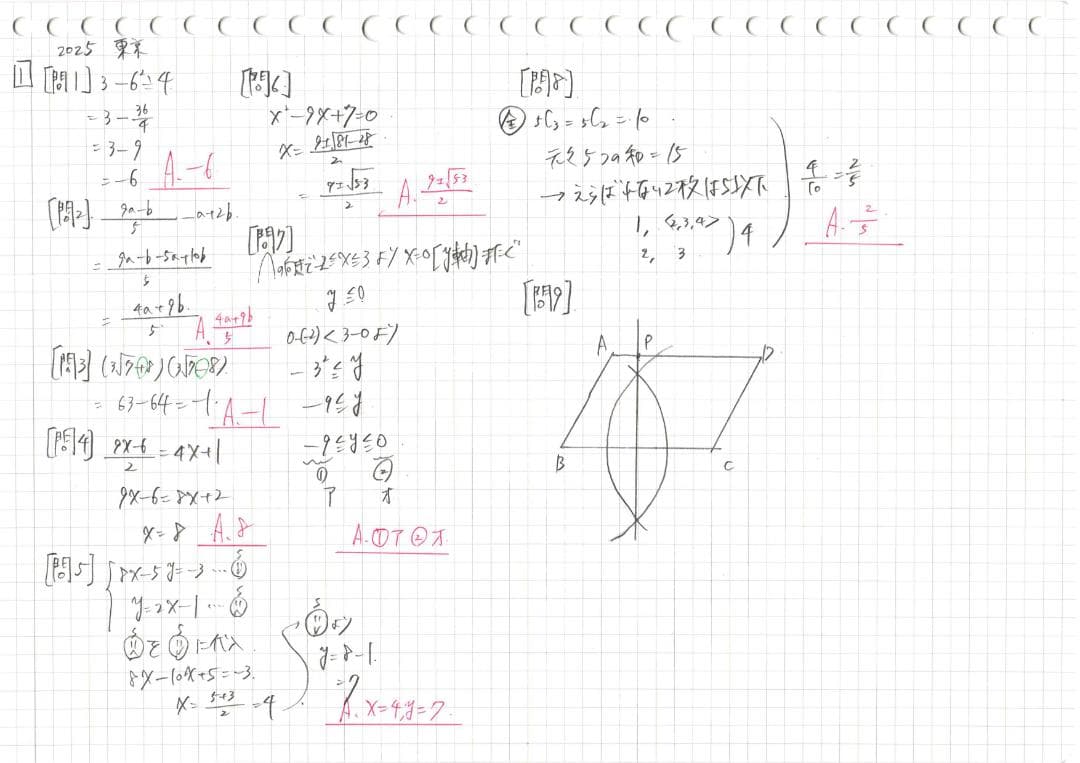 2025 東京
1 [問1] 3-6²÷4
=3-36/4
=3-9
=-6 A.-6
[問2] (9a-b)/5 -a+2b
=(9a-b-5a+10b)/5
=(4a+9b)/5 A.(4a+9b)/5
[問3] (3√7+8)(3√7-8)
=63-64=-1 A.-1
[問4] (9x-6)/2=4x+1
9x-6=8x+2
x=8 A.8
[問5] {8x-5y=-3…
y=2x-1…
を に代入
8x-10x+5=-3
x=(5+3)/2=4
より
y=8-1
=7
A. x=4, y=7
[問6]
x²-9x+7=0
x=(9±√81-28)/2
=(9±√53)/2 A.(9±√53)/2
[問7]
-2≦x≦3より x=0[y軸]
y≦0
0-(-2)<3-0より
-3²≦y
-9≦y
-9≦y≦0
① ②
ア オ
A.①ア ②オ
[問8]
全 ₅C₃=₅C₂=10
元々5つの和=15
→えらばれない2枚は5以下
1, <2,3,4>
2, 3 ) 4
4/10=2/5
A. 2/5
[問9]
A P D
B C